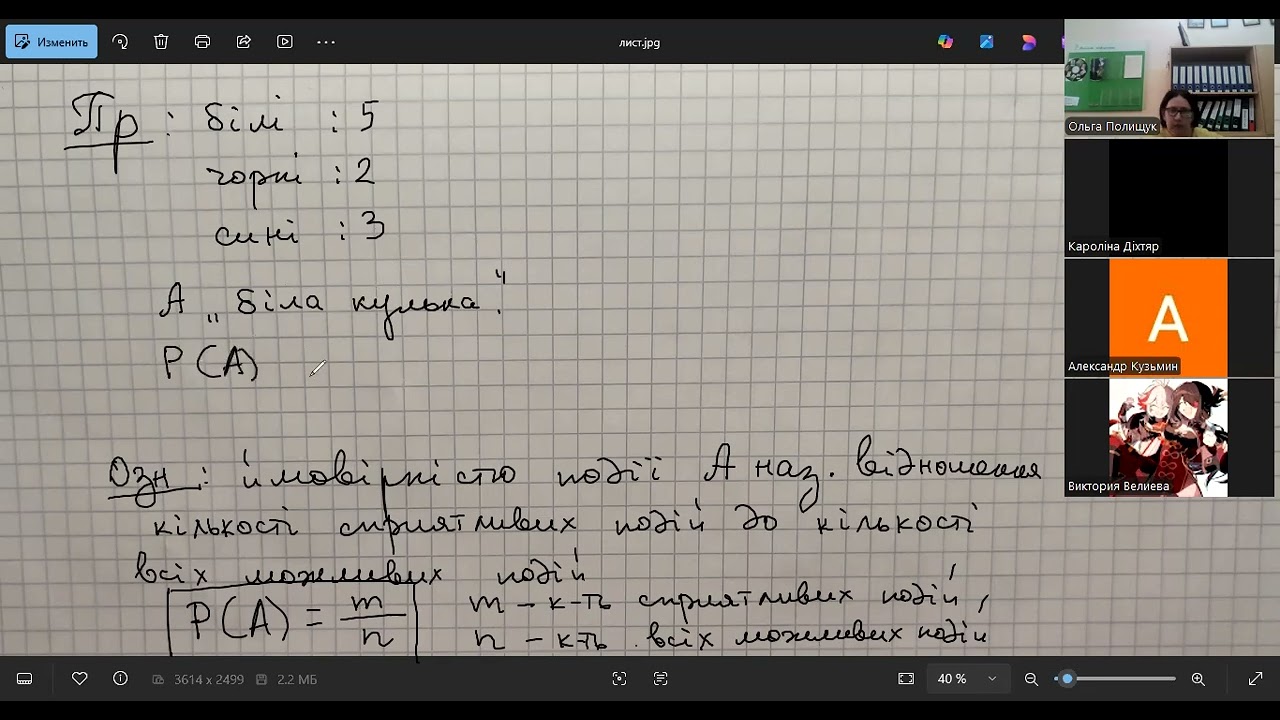 Изменить
лист.jpg
Пр : білі : 5
чорні : 2
сині : 3
А „ біла кулька."
P(A)
Озн : ймовірністю події А наз. відношення
кількості сприятливих подій до кількості
всіх можливих подій
P(A) = m/n
m – к-ть сприятливих подій,
n – к-ть всіх можливих подій
3614 x 2499
2.2 МБ
40 %
Ольга Полищук
Кароліна Діхтяр
A
Александр Кузьмин
Виктория Велиева